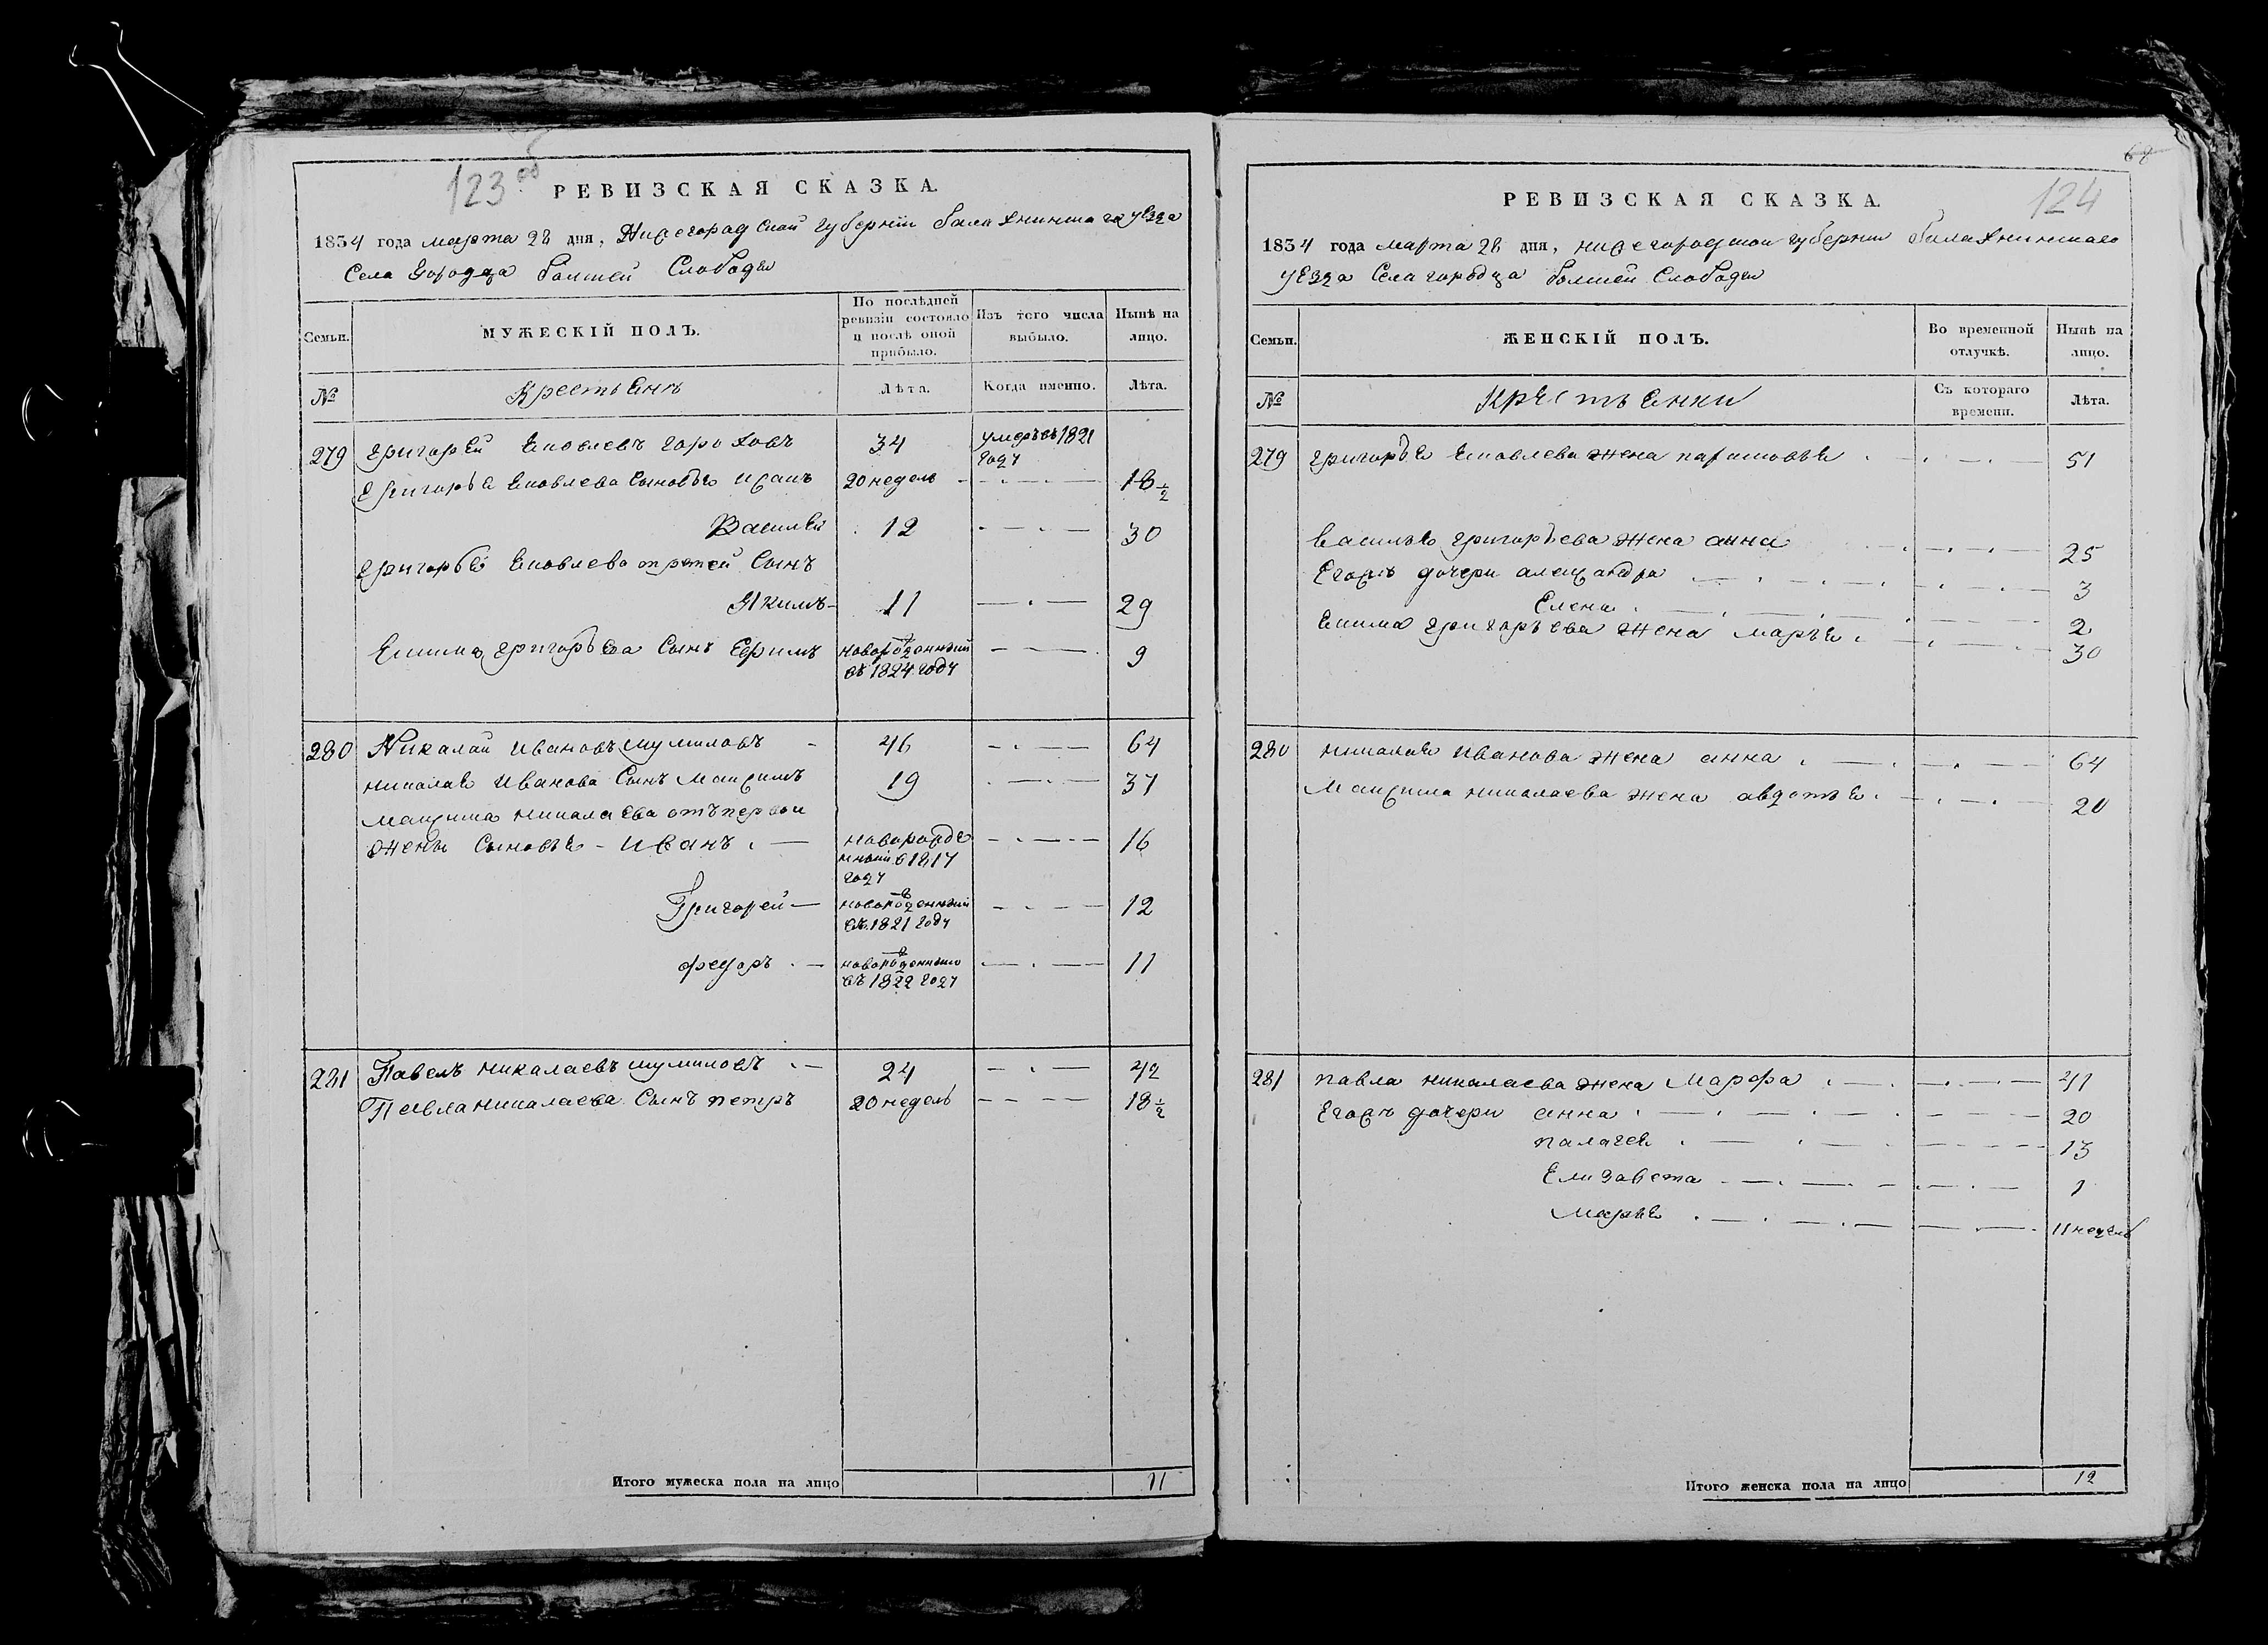 123
РЕВИЗСКАЯ СКАЗКА.
1834 года марта 28 дня, Нижегородской губернии балахнинскаго уезда
Села Городца болшей Слободы
Семьи.
МУЖЕСКІЙ ПОЛЪ.
По послѣдней ревизіи состояло и послѣ оной прибыло.
Изъ того числа выбыло.
Нынѣ на лицо.
№
Крестьянъ
Лѣта.
Когда именно.
Лѣта.
279 григорей Яковлевъ гороховъ 34 умеръ въ 1821 году
григорья Яковлева сыновья 20 недель 18 1/2
Василей 12 30
григорья Яковлева третей Сынъ
Якимъ 11 29
Якима григорьева Сынъ Ефимъ новорожденный въ 1824 году 9
280 Николай Ивановъ шумиловъ 46 64
николая Иванова Сынъ Максимъ 19 37
Максима николаева отъ первой
жены Сыновья - Иванъ новорожденный в 1817 году 16
Григорей новорожденный въ 1821 году 12
федоръ новорожденный въ 1822 году 11
281 Павелъ николаевъ шумиловъ 24 42
Павла николаева Сынъ петръ 20 недель 18 1/2
Итого мужеска пола на лицо 11
64
124
РЕВИЗСКАЯ СКАЗКА.
1834 года марта 28 дня, нижегородской губернии балахнинскаго
уезда Села городца болшей Слободы
Семьи.
ЖЕНСКІЙ ПОЛЪ.
Во временной отлучкѣ.
Нынѣ на лицо.
№
Крестьянки
Съ котораго времени.
Лѣта.
279 григорья Яковлева жена парасковья 51
Василья григорьева жена анна 25
Егожъ дочери александра 3
Елена 2
Якима григорьева жена марья 30
280 николая Иванова жена анна 64
Максима николаева жена авдотья 20
281 павла николаева жена Марфа 41
Егожъ дочери анна 20
палагея 13
Елизавета 1
Марья 11 недель
Итого женска пола на лицо 12